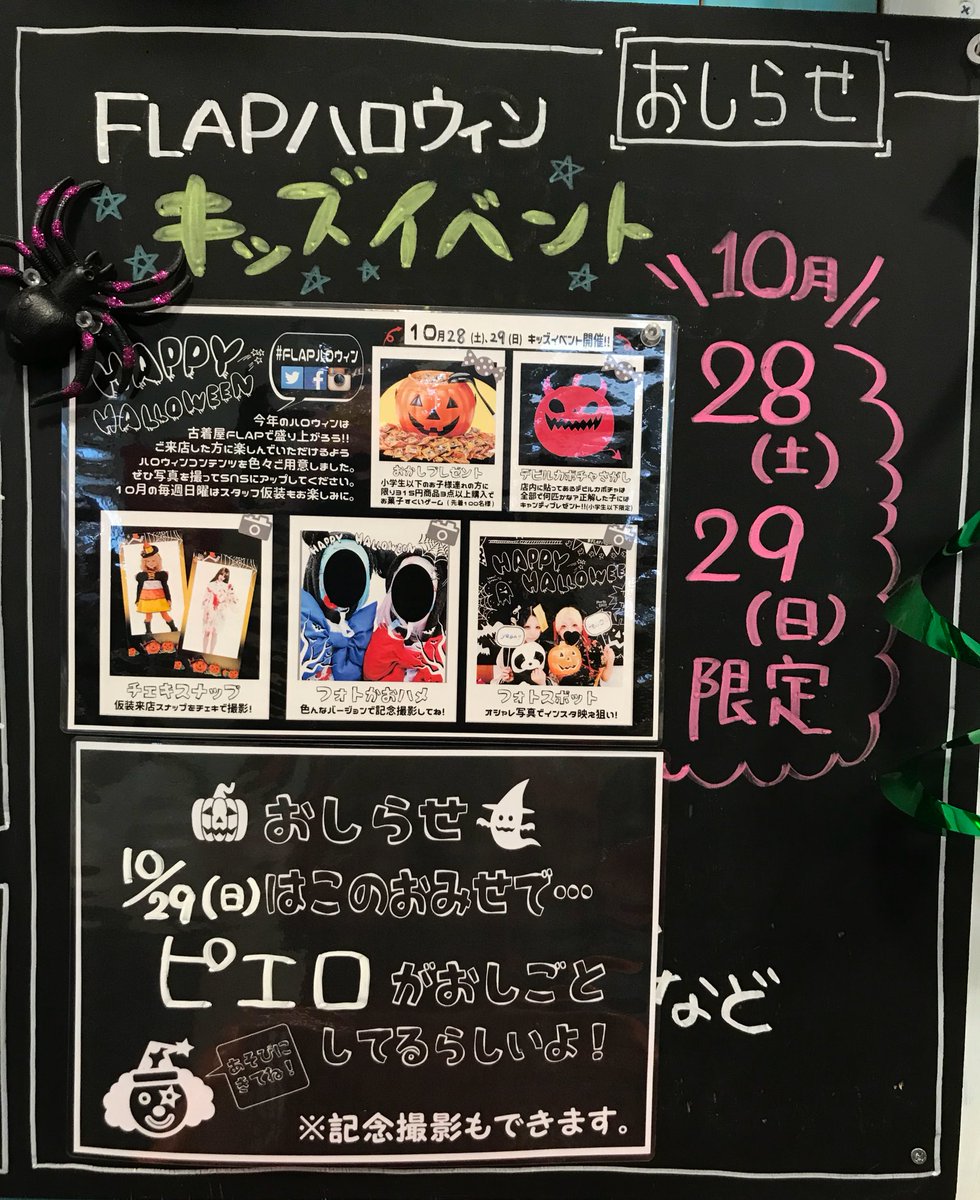 おしらせ
FLAPハロウィン
キッズイベント
10月
28
(土)
29
(日)
限定
10月28(土)、29(日) キッズイベント開催!!
HAPPY
HALLOWEEN
#FLAPハロウィン
今年のハロウィンは
古着屋FLAPで盛り上がろう!!
ご来店した方に楽しんでいただけるよう
ハロウィンコンテンツを色々ご用意しました。
ぜひ写真を撮ってSNSにアップしてください。
10月の毎週日曜はスタッフ仮装もお楽しみに。
おかしプレゼント
小学生以下のお子様連れの方に
限り315円商品3点以上購入で
お菓子すくいゲーム(先着100名様)
デビルカボチャさがし
店内に貼ってあるデビルカボチャは
全部で何匹かな?正解した子には
キャンディプレゼント!!(小学生以下限定)
チェキスナップ
仮装来店スナップをチェキで撮影!
HAPPY HALLOWEEN
フォトかおハメ
色んなバージョンで記念撮影してね!
HAPPY
HALLOWEEN
フォトスポット
オシャレ写真でインスタ映え狙い!
おしらせ
10/29(日)はこのおみせで…
ピエロがおしごと
してるらしいよ!
あそびに
きてね!
※記念撮影もできます。
など